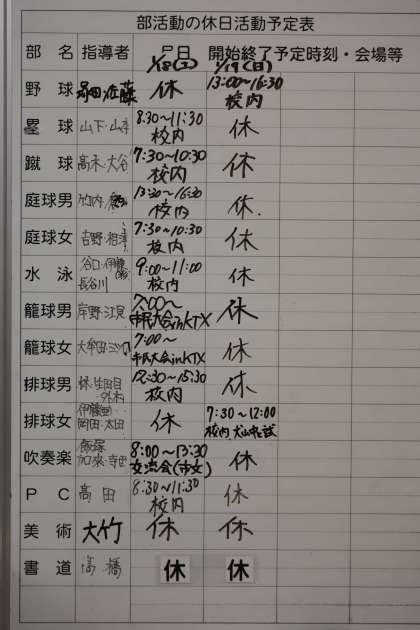 部活動の休日活動予定表
部 名 指導者 月日 開始終了予定時刻・会場等
1/18(土) 1/19(日)
野 球 佐藤 休 13:00〜16:30 校内
塁 球 山下・山本 8:30〜11:30 校内 休
蹴 球 高木・大谷 7:30〜10:30 校内 休
庭球男 竹内 13:30〜16:30 校内 休
庭球女 吉野・相澤 7:30〜10:30 校内 休
水 泳 谷口・伊藤 長谷川 9:00〜11:00 校内 休
籠球男 岸野・江見 7:00〜 市民大会inKTX 休
籠球女 大牟田 7:00〜 市民大会inKTX 休
排球男 生田目 12:30〜15:30 校内 休
排球女 伊藤 岡田・太田 休 7:30〜12:00 校内
吹奏楽 飯塚 加来・寺西 8:00〜13:30 交流会(市文) 休
PC 高田 8:30〜11:30 校内 休
美 術 大竹 休 休
書 道 高橋 休 休